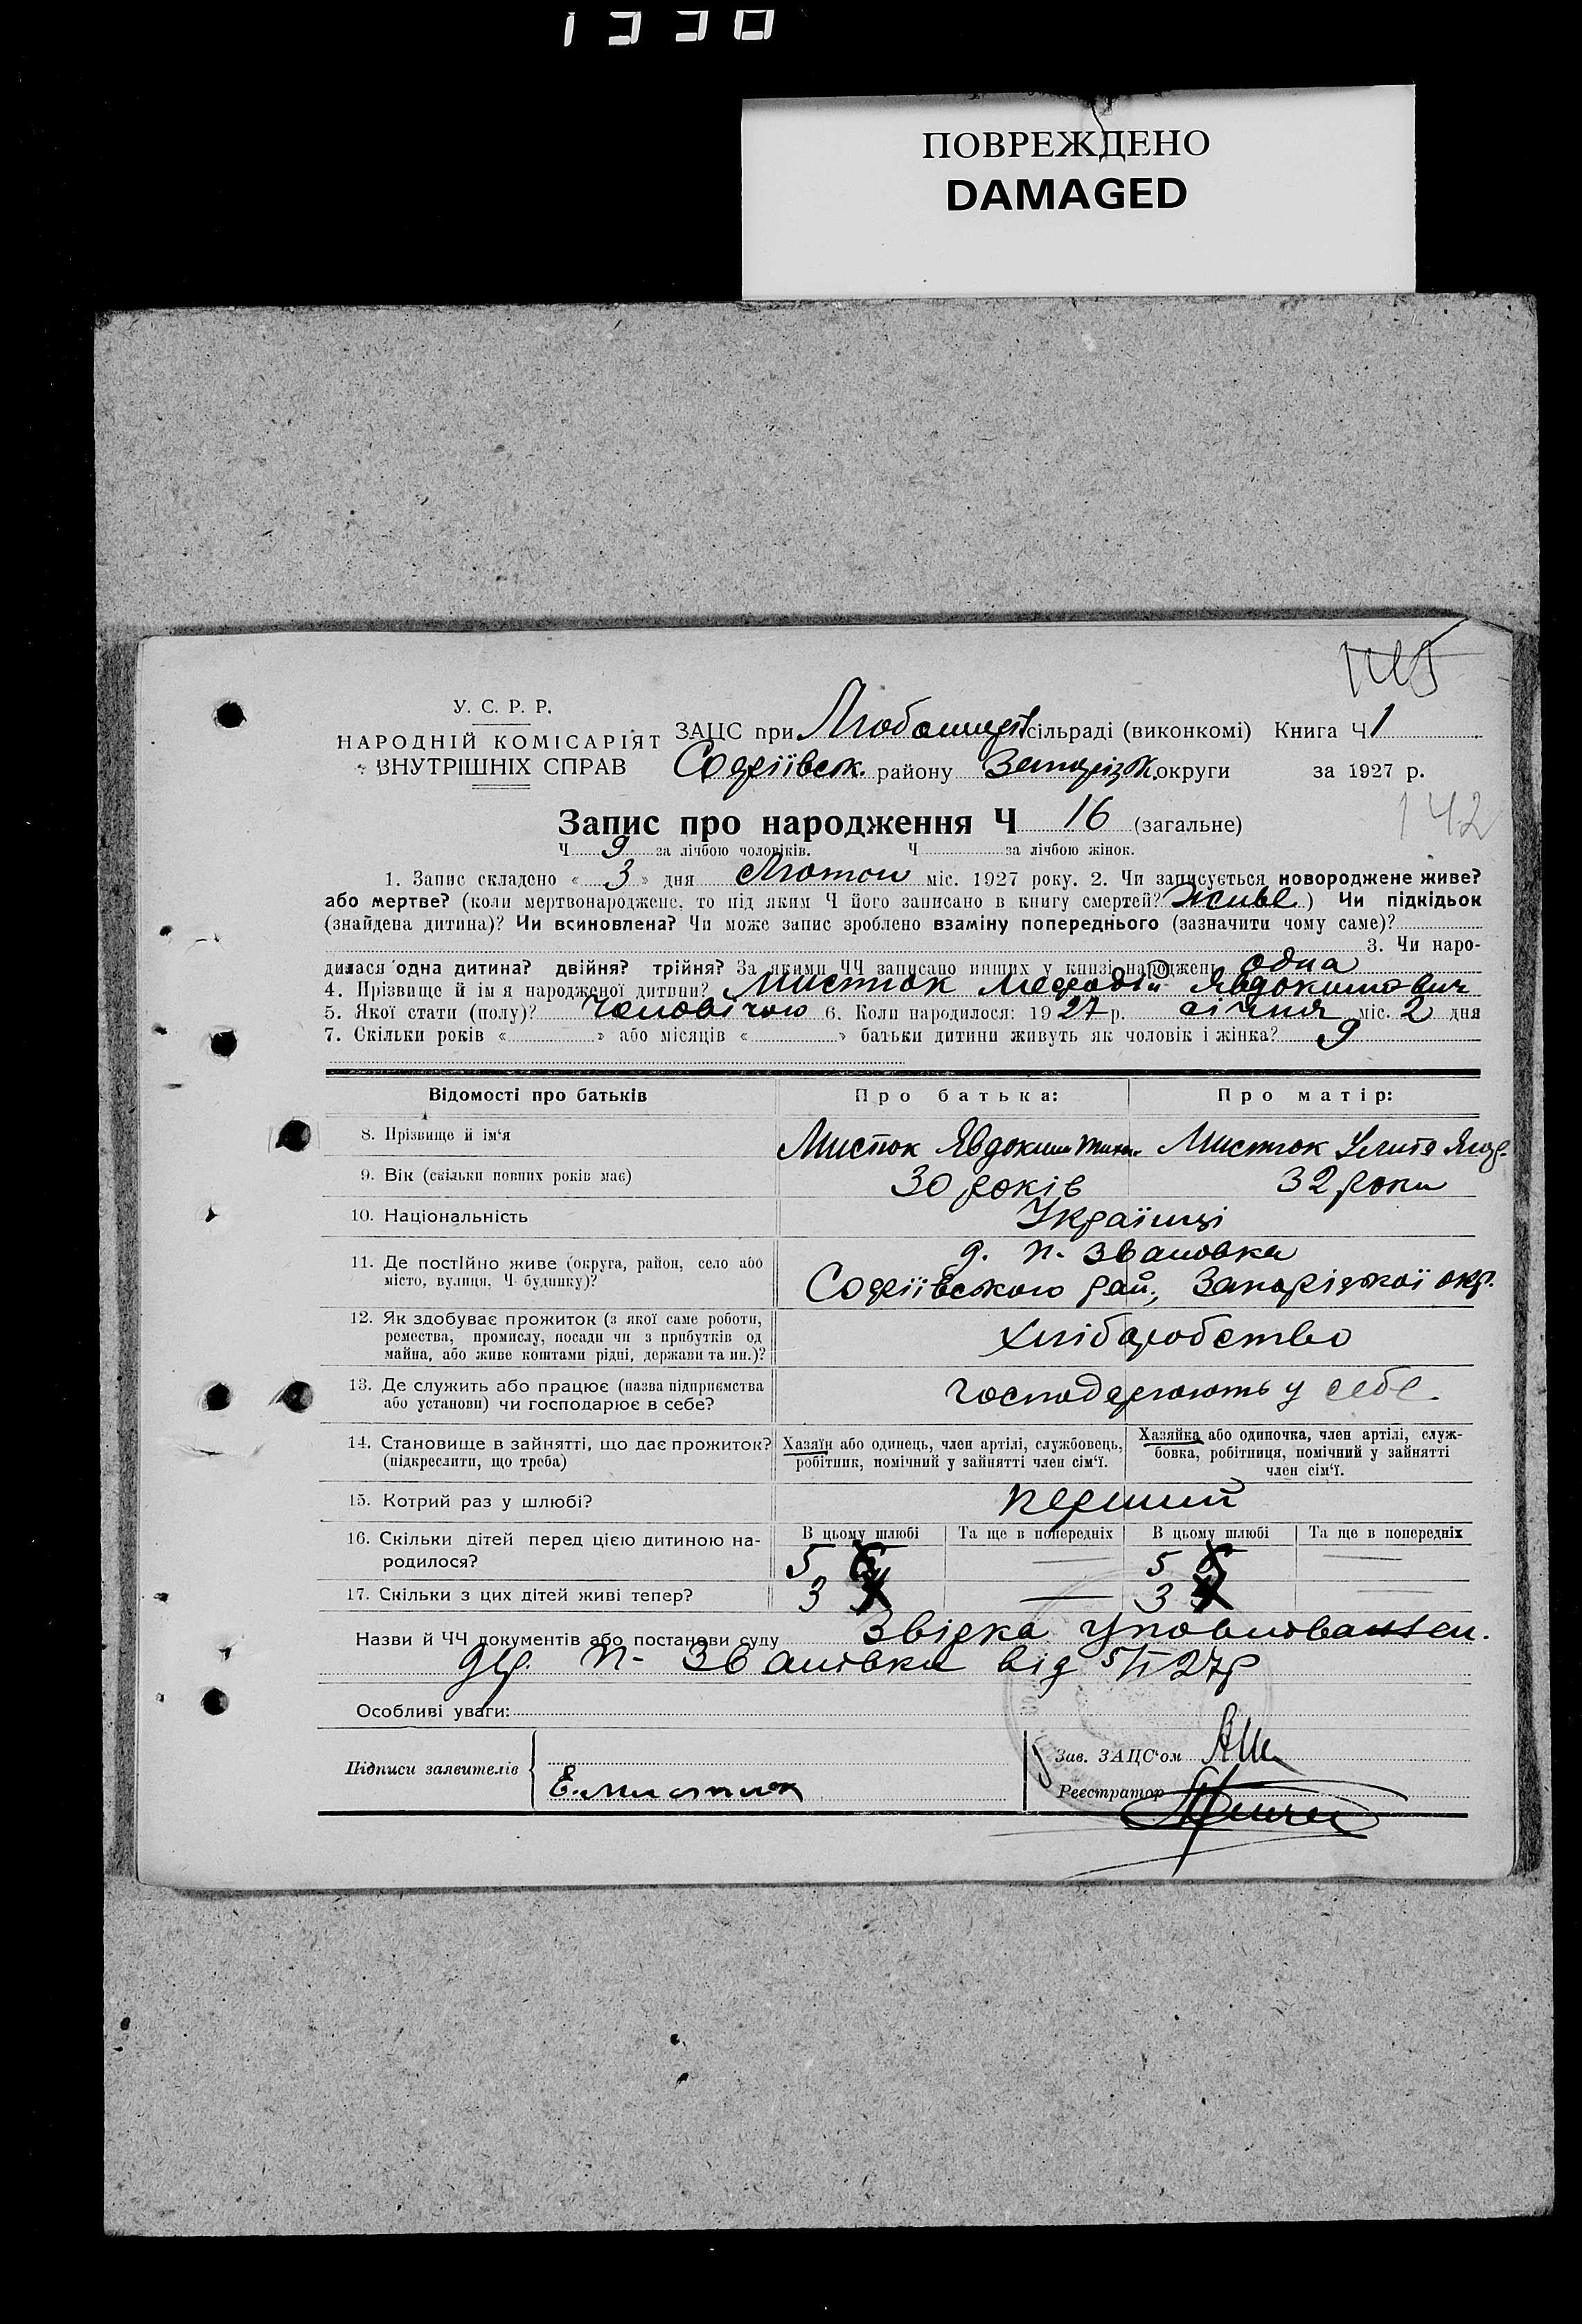 1330
ПОВРЕЖДЕНО
DAMAGED
У. С. Р. Р.
НАРОДНІЙ КОМІСАРІЯТ
ВНУТРІШНІХ СПРАВ
ЗАЦС при сільраді (виконкомі) Книга Ч 1
Софіївськ. району Запоріжж. округи за 1927 р.
142
Запис про народження Ч 16 (загальне)
Ч 9 за лічбою чоловіків. Ч за лічбою жінок.
1. Запис складено « 3 » дня Лютого міс. 1927 року. 2. Чи записується новороджене живе?
або мертве? (коли мертвонароджене, то під яким Ч його записано в книгу смертей? живе ) Чи підкідьок
(знайдена дитина)? Чи всиновлена? Чи може запис зроблено взаміну попереднього (зазначити чому саме)?
3. Чи наро-
дилася одна дитина? двійня? трійня? За якими ЧЧ записано инших у книзі народжень одна
4. Прізвище й ім я народженої дитини? Мистюк Мефодій Явдокимович
5. Якої стати (полу)? чоловічою 6. Коли народилося: 1927 р. січня міс. 2 дня
7. Скільки років « » або місяців « » батьки дитини живуть як чоловік і жінка? 9
Відомості про батьків
Про батька:
Про матір:
8. Прізвище й ім‘я
Мистюк Явдоким
Мистюк Улита
9. Вік (скільки повних років має)
30 років
32 роки
10. Національність
Українці
11. Де постійно живе (округа, район, село або
місто, вулиця, Ч будинку)?
д. П- Звановка
Софіївського рай, Запоріжкої окр.
12. Як здобуває прожиток (з якої саме роботи,
ремества, промислу, посади чи з прибутків од
майна, або живе коштами рідні, держави та ин.)?
хліборобство
13. Де служить або працює (назва підприємства
або установи) чи господарює в себе?
господарюють у себе
14. Становище в зайнятті, що дає прожиток?
(підкреслити, що треба)
Хазяїн або одинець, член артілі, службовець,
робітник, помічний у зайнятті член сім‘ї.
Хазяйка або одиночка, член артілі, служ-
бовка, робітниця, помічний у зайнятті
член сім‘ї.
15. Котрий раз у шлюбі?
перший
16. Скільки дітей перед цією дитиною на-
родилося?
В цьому шлюбі
Та ще в попередніх
В цьому шлюбі
Та ще в попередніх
5
5
17. Скільки з цих дітей живі тепер?
3
3
Назви й ЧЧ документів або постанови суду Звірка уповноважен.
П- Званівки від 27р
Особливі уваги:
Підписи заявителів
Є. Мистюк
Зав. ЗАЦС‘ом
Реєстратор